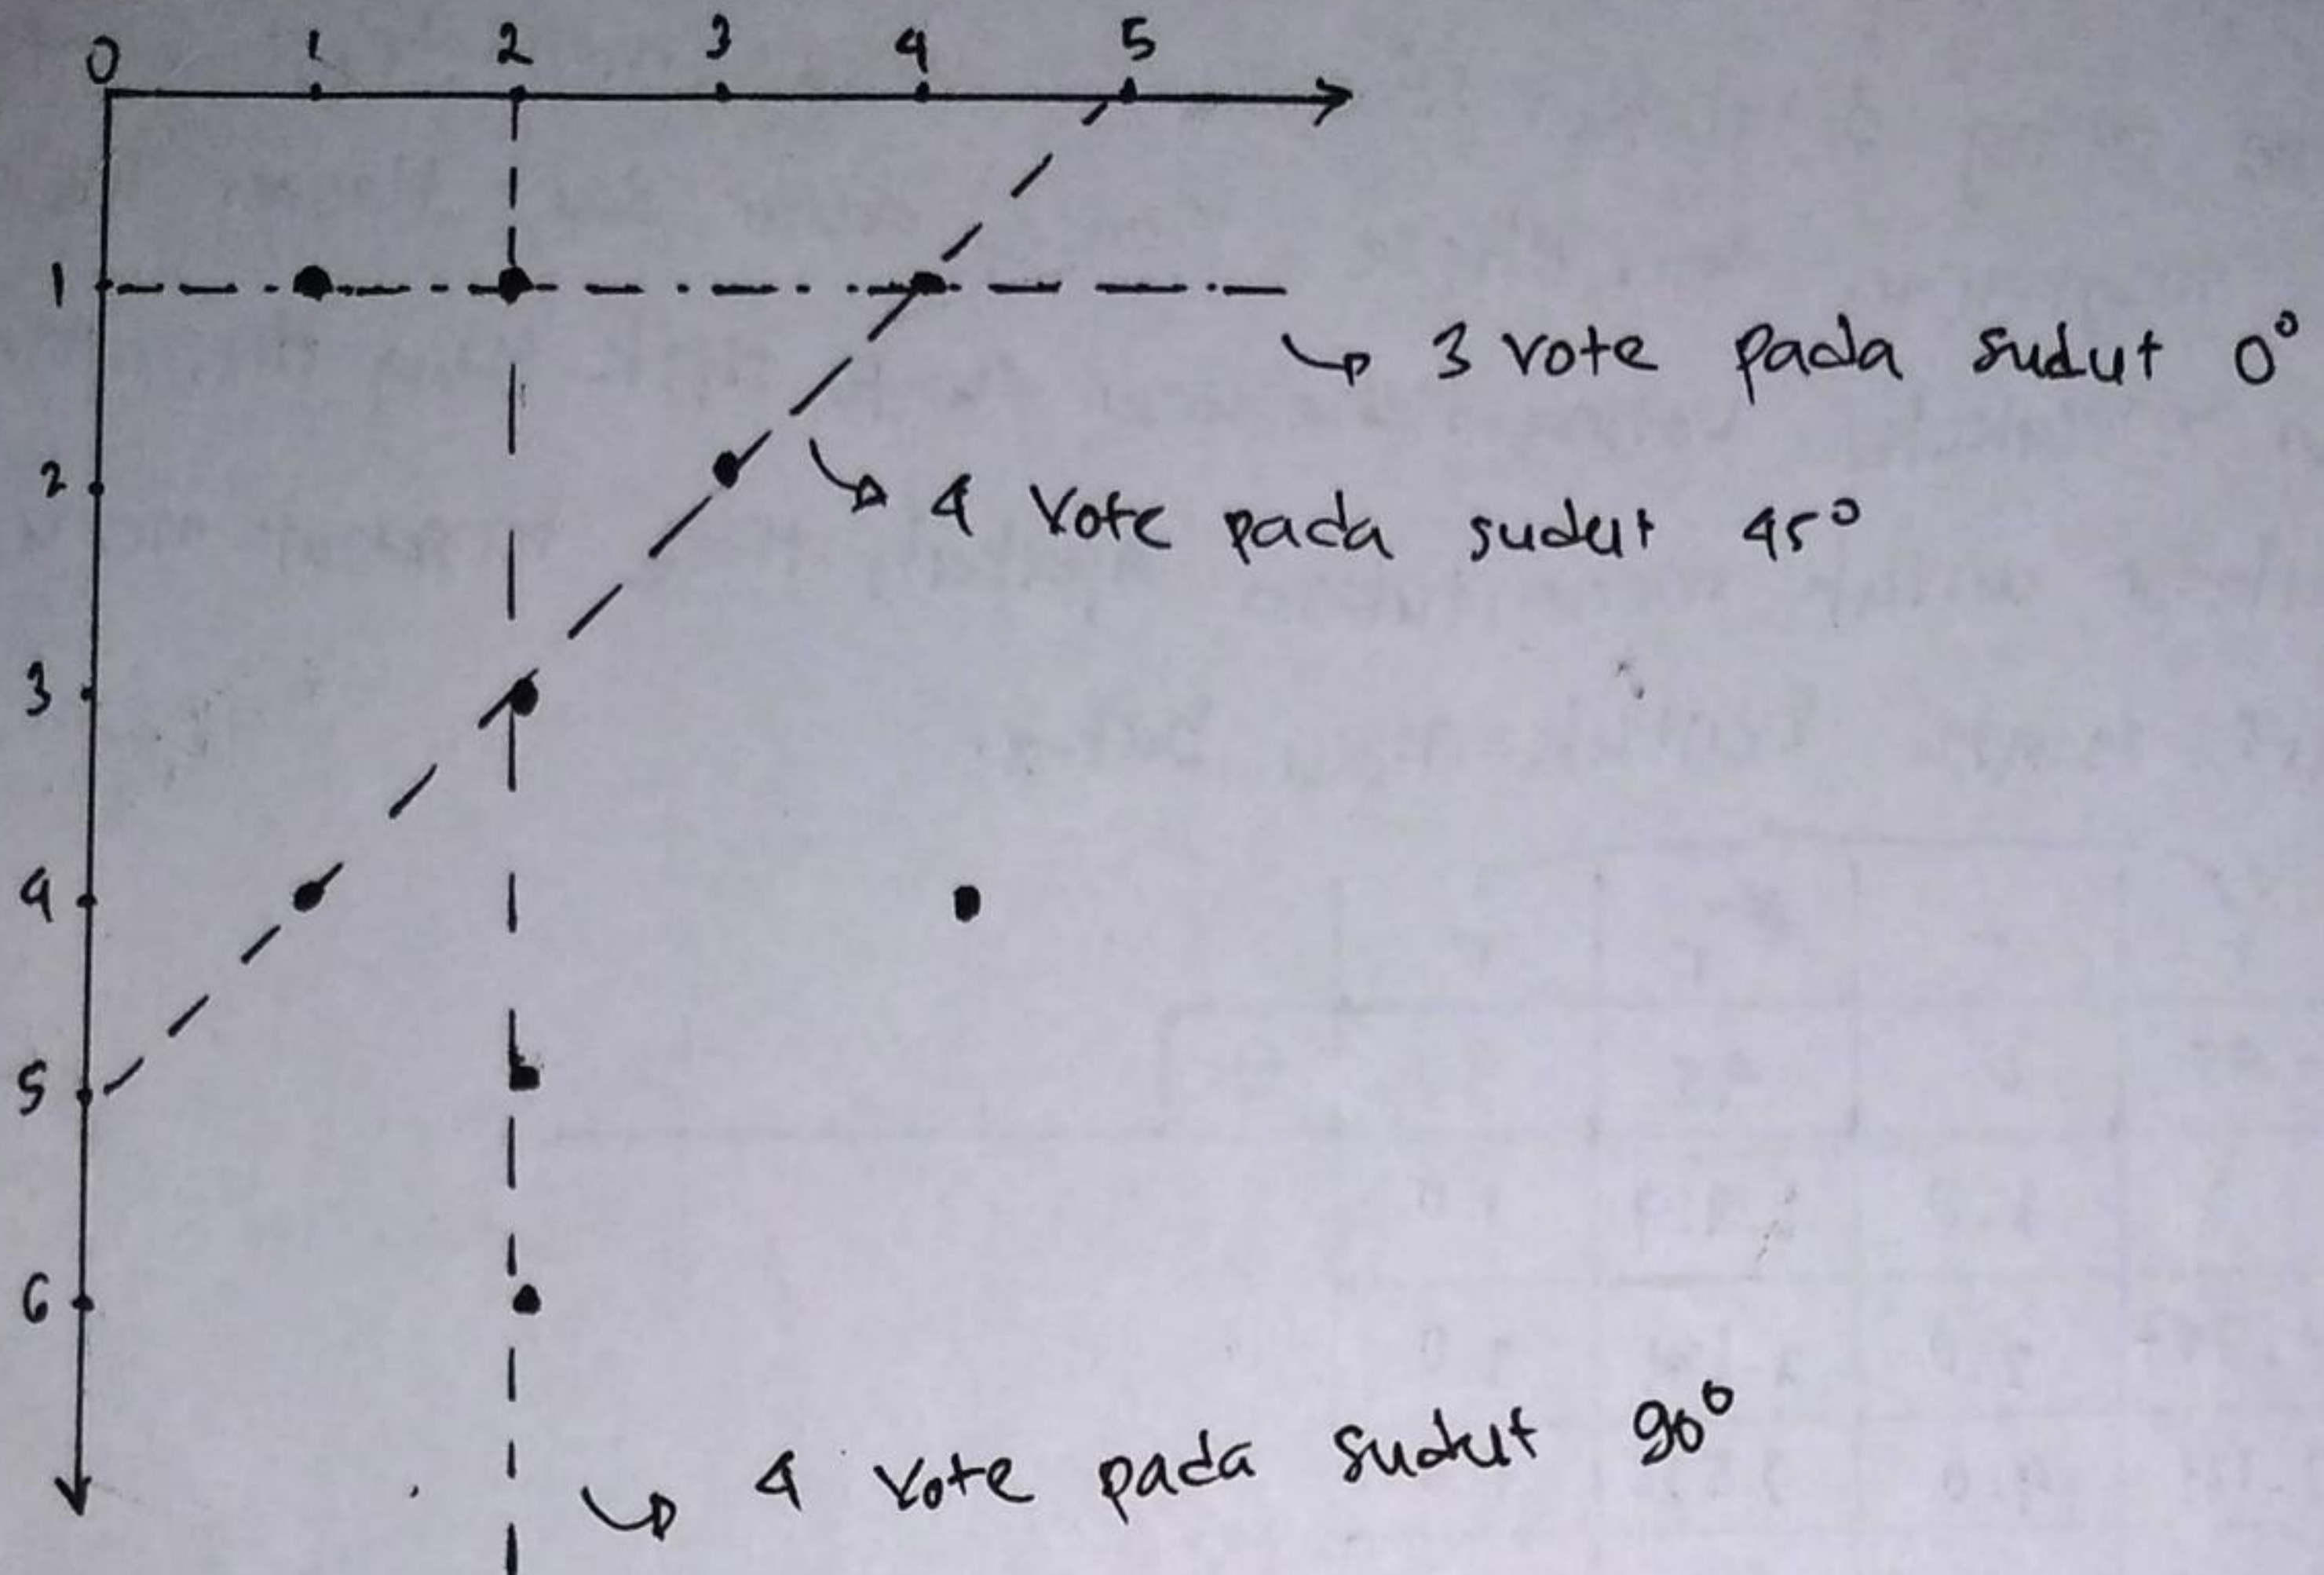 0 1 2 3 4 5
1
3 vote pada sudut 0°
2
4 vote pada sudut 45°
3
4
5
6
4 vote pada sudut 90°